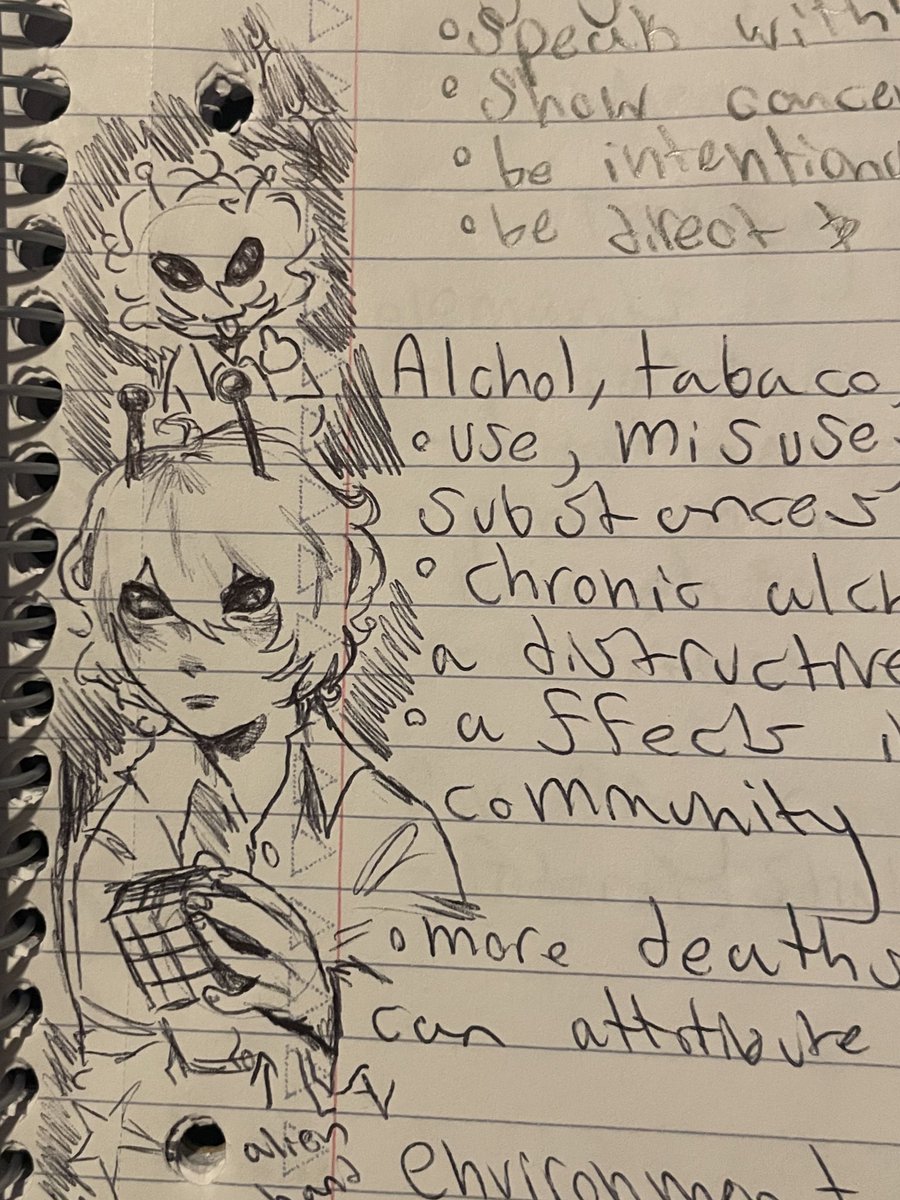 Speak with
Show conce
be intentiona
be direct
Alchol, tabaco,
use, misuse
substances
chronic alch
a distructive
affects i
community
more deaths
can attotibute
alien
hand
environment